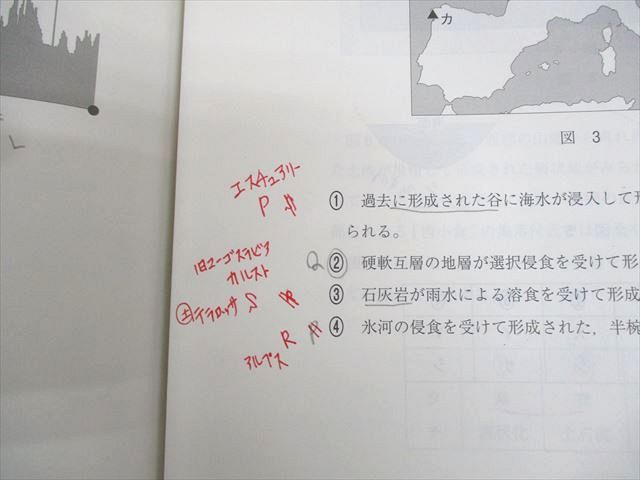 カ
図 3
エスチュアリー
P
① 過去に形成された谷に海水が浸入して形
られる。
旧ユーゴスラビア
カルスト
Q
② 硬軟互層の地層が選択侵食を受けて形
土テラロッサ S
③ 石灰岩が雨水による溶食を受けて形成
R
④ 氷河の侵食を受けて形成された，半椀
アルプス
L